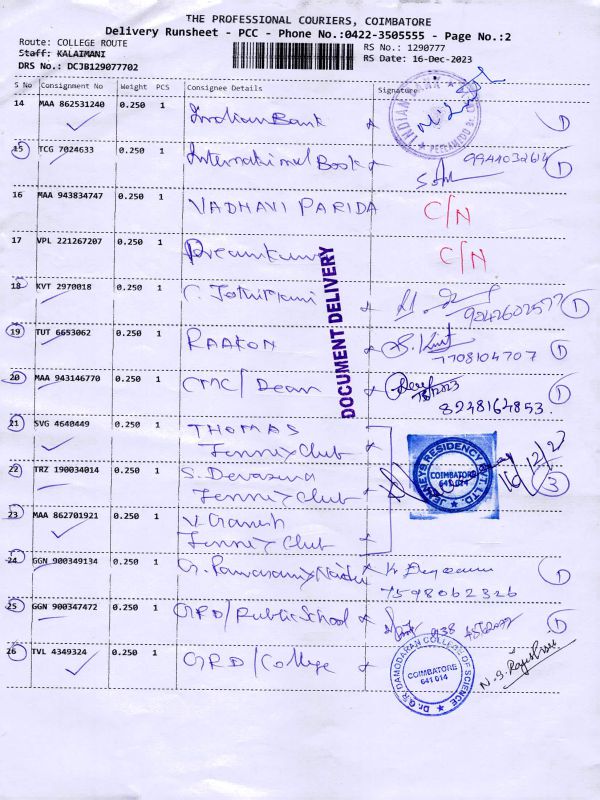 THE PROFESSIONAL COURIERS, COIMBATORE
Delivery Runsheet - PCC - Phone No.:0422-3505555 - Page No.:2
Route: COLLEGE ROUTE
RS No.: 1290777
Staff: KALAIMANI
RS Date: 16-Dec-2023
DRS No.: DCJB129077702
S No Consignment No Weight PCS Consignee Details Signature
14 MAA 862531240 0.250 1 Indian Bank
INDIAN BANK
15 TCG 7024633 0.250 1 International Book
16 MAA 943834747 0.250 1 VADHAVI PARIDA C/N
17 VPL 221267207 0.250 1 C/N
DOCUMENT DELIVERY
18 KVT 2970018 0.250 1 C. Jothimani 1
19 TUT 6653062 0.250 1 RAAKON
7708104707 1
20 MAA 943146770 0.250 1 CMC/Dean 1
8248164853.
21 SVG 4640449 0.250 1 THOMAS
Jenneys Club
JENNEYS RESIDENCY PVT. LTD.
COIMBATORE
641 014
16/12/23
22 TRZ 190034014 0.250 1 S. Devasena
Jenneys Club
3
23 MAA 862701921 0.250 1 V. Ganesh
Jenneys Club
24 GGN 900349134 0.250 1 G. Ramasamy Naidu 1
7598062326
25 GGN 900347472 0.250 1 GRD/Public School 1
26 TVL 4349324 0.250 1 GRD/College
Dr. G.R. DAMODARAN COLLEGE OF SCIENCE
COIMBATORE
641 014